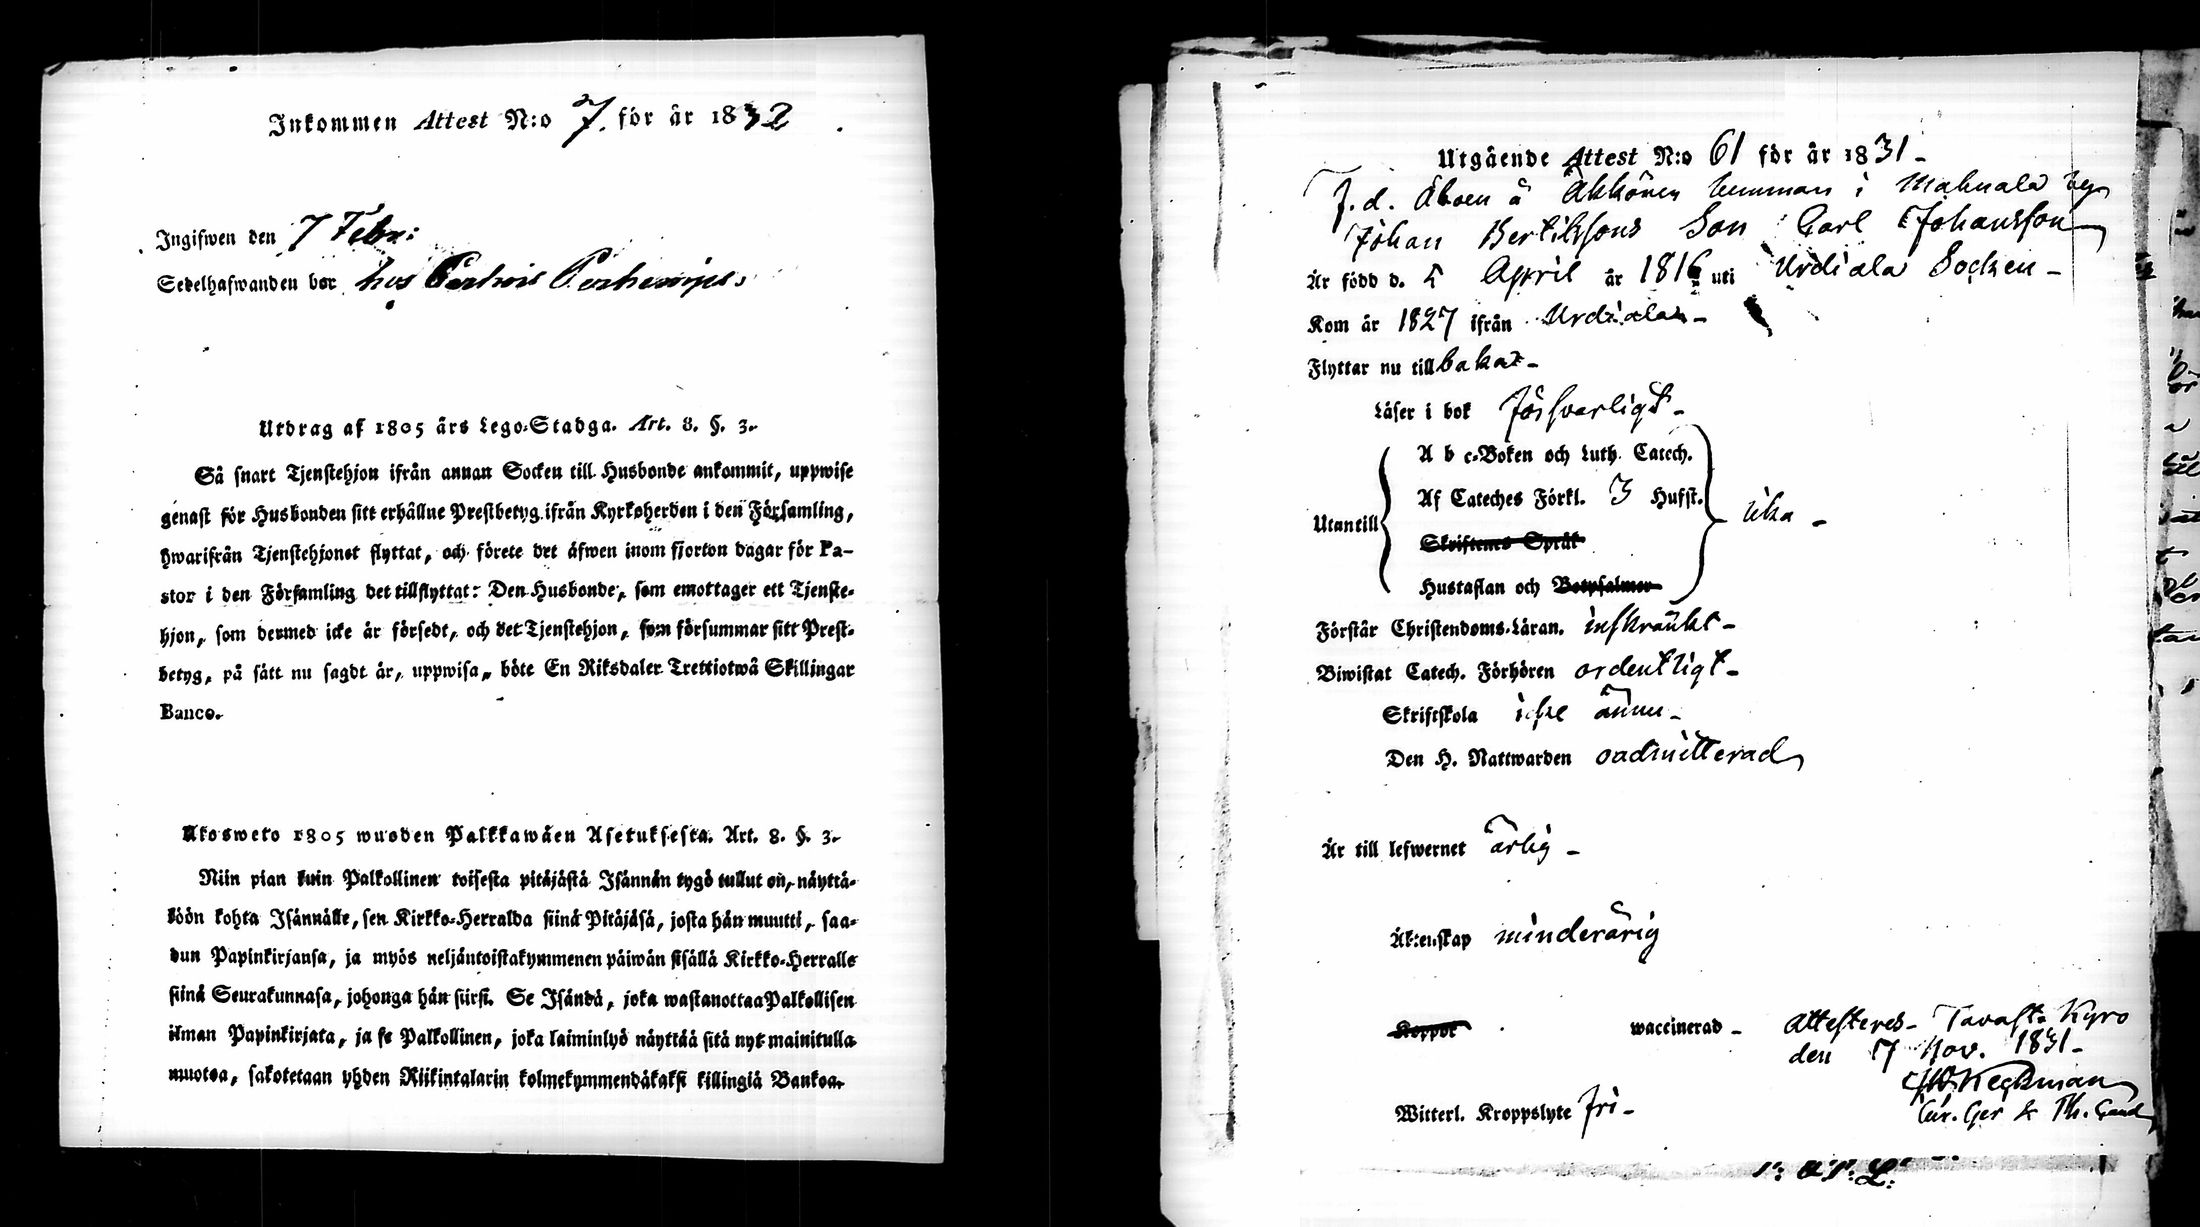 Inkommen Attest N:o 7. för år 1832
Ingifwen den 7 Febr:
Sedelhafwanden bor hos
Utdrag af 1805 års Lego-Stadga. Art. 8. §. 3.
Så snart Tjenstehjon ifrån annan Socken till Husbonde ankommit, uppwise
genast för Husbonden sitt erhållne Prestbetyg ifrån Kyrkoherden i den Församling,
hwarifrån Tjenstehjonet flyttat, och förete det äfwen inom fjorton dagar för Pa-
stor i den Församling det tillflyttat: Den Husbonde, som emottager ett Tjenste-
hjon, som dermed icke är försedt, och det Tjenstehjon, som försummar sitt Prest-
betyg, på sätt nu sagdt är, uppwisa, böte En Riksdaler Trettiotwå Skillingar
Banco.
Ulosweto 1805 wuoden Palkkawäen Asetuksesta. Art. 8. §. 3.
Niin pian kuin Palkollinen toisesta pitäjästä Isännän tygö tullut on, näyttä-
köön kohta Isännälle, sen Kirkko-Herralda siinä Pitäjäsä, josta hän muutti, saa-
dun Papinkirjansa, ja myös neljäntoistakymmenen päiwän sisällä Kirkko-Herralle
siinä Seurakunnasa, johonga hän siirsi. Se Isändä, joka wastanottaa Palkollisen
ilman Papinkirjata, ja se Palkollinen, joka laiminlyö näyttää sitä nyt mainitulla
muotoa, sakotetaan yhden Riikintalarin kolmekymmendäkaksi killingiä Bankoa.
Utgående Attest N:o 61 för år 1831-
F.d. Åboen å hemman i Mahnala by
Johan Bertilssons Son Carl Johansson
Är född d. 5 April år 1816 uti Urdiala Socken-
Kom år 1827 ifrån Urdiala-
Flyttar nu till baka-
Läser i bok försvarligt-
A b c-Boken och Luth. Catech.
Af Cateches Förkl. 3 Hufst.
Utantill lika -
Skriftenes Språk
Hustaflan och Botpsalmer
Förstår Christendoms-Läran. inskränkt-
Biwistat Catech. Förhören ordentligt-
Skriftskola icke ännu-
Den H. Nattwarden oadmitterad
Är till lefwernet ärlig -
Äktenskap minderårig
Koppor waccinerad - Attesteras- Tavast Kyro
den 17 Nov. 1831-
Keckman
Witterl. Kroppslyte fri-